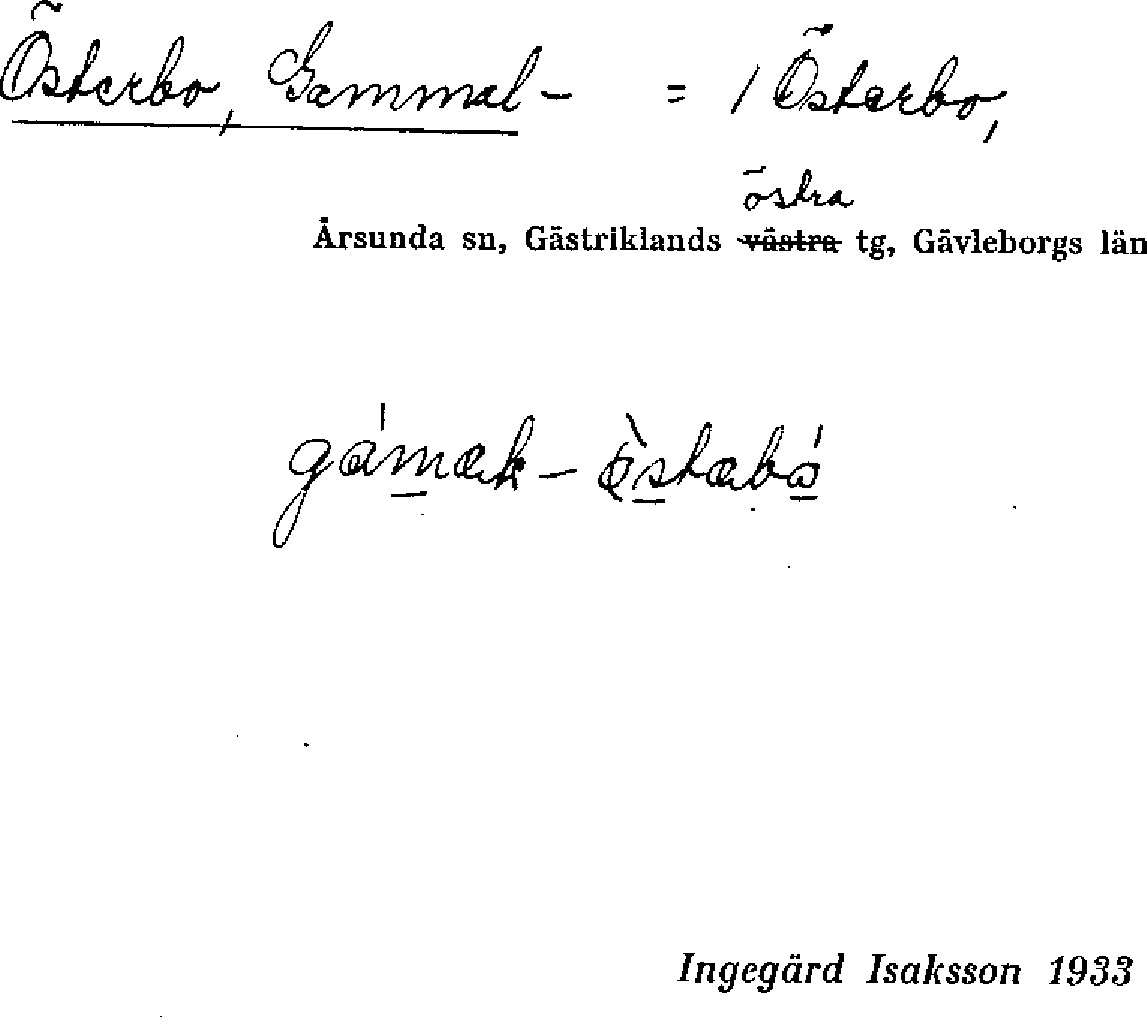 Österbo, Gammal- = / Österbo,
östra
Årsunda sn, Gästriklands västra tg, Gävleborgs län
Ingegärd Isaksson 1933